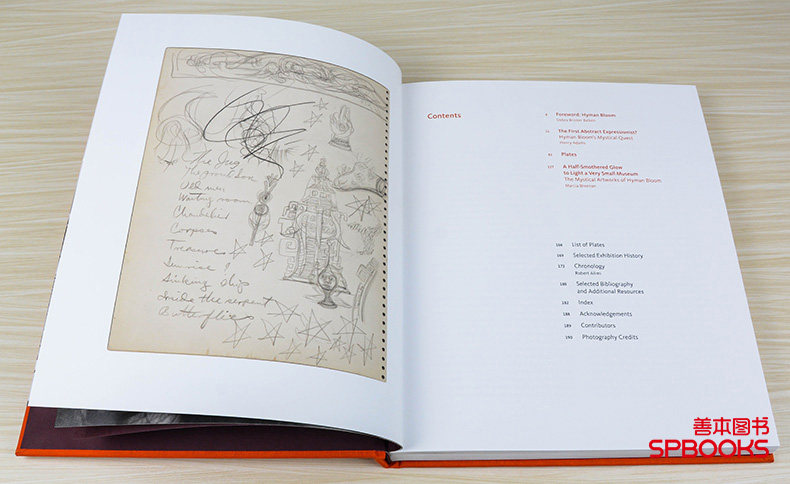 The Jug
the good son
Old men
Waiting room
Chandelier
Corpses
Treasure
Sunrise
Sinking ship
Inside the serpent
Butterflies
Contents
Foreword: Hyman Bloom
Debra Bricker Balken
The First Abstract Expressionist?
Hyman Bloom's Mystical Quest
Henry Adams
Plates
A Half-Smothered Glow
to Light a Very Small Museum
The Mystical Artworks of Hyman Bloom
Marcia Brennan
List of Plates
Selected Exhibition History
Chronology
Robert Alimi
Selected Bibliography
and Additional Resources
Index
188 Acknowledgements
189 Contributors
190 Photography Credits
善本图书
SPBOOKS